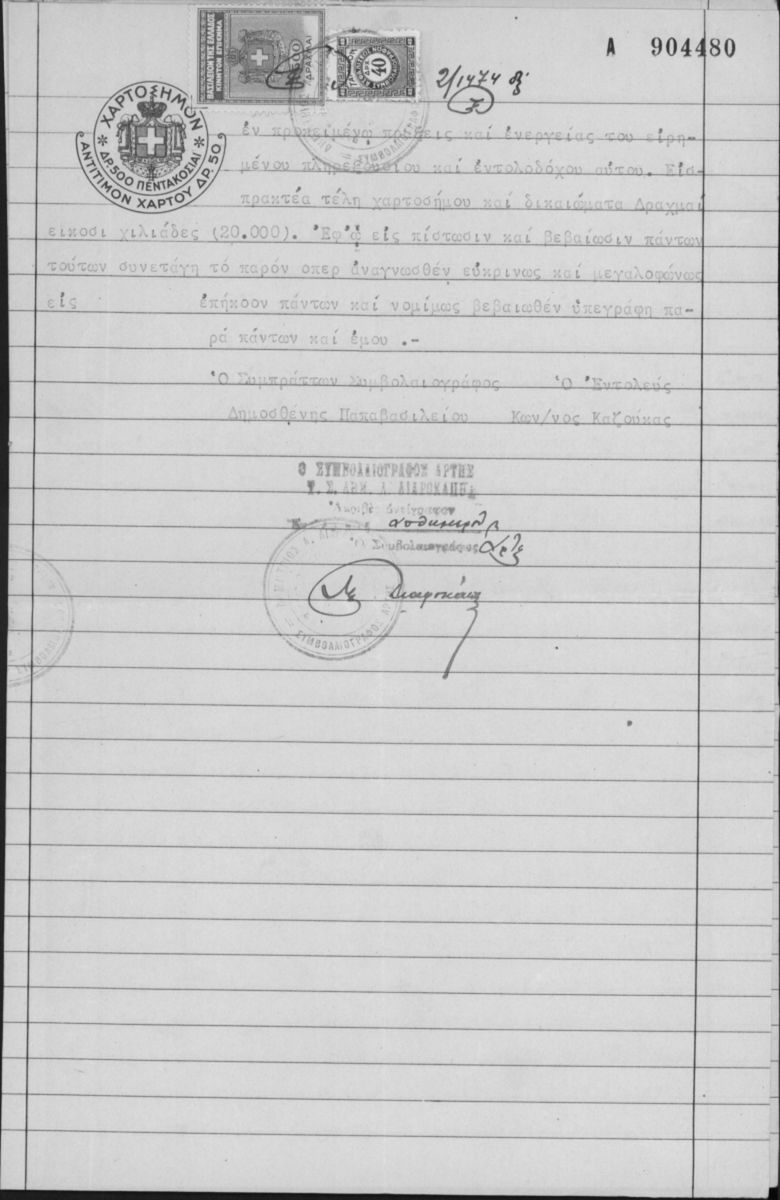 Α 904480
ΒΑΣΙΛΕΙΟΝ ΤΗΣ ΕΛΛΑΔΟΣ
ΚΙΝΗΤΟΝ ΕΠΙΣΗΜΑ
ΔΡΑΧΜΑΙ
ΔΡΧ 40
2/1474
ΧΑΡΤΟΣΗΜΟΝ
ΔΡ. 500 ΠΕΝΤΑΚΟΣΙΑΙ
ΑΝΤΙΤΙΜΟΝ ΧΑΡΤΟΥ ΔΡ. 50
ἐν προκειμένῳ πράξεις καί ἐνεργείας του εἰρη-
μένου πληρεξουσίου καί ἐντολοδόχου αὐτου. Εἰσ-
πρακτέα τέλη χαρτοσήμου καί δικαιώματα Δραχμαί
εἰκοσι χιλιάδες (20.000). Ἐφ'ᾧ εἰς πίστωσιν καί βεβαίωσιν πάντων
τούτων συνετάγη τό παρόν οπερ ἀναγνωσθέν εὐκρινως καί μεγαλοφώνως
εἰς ἐπήκοον πάντων καί νομίμως βεβαιωθέν ὑπεγράφη πα-
ρά πάντων καί ἐμου .-
Ὁ Συμπράττων Συμβολαιογράφος Ὁ Ἐντολεύς
Δημοσθένης Παπαβασιλείου Κων/νος Καζούκας
Ο ΣΥΜΒΟΛΑΙΟΓΡΑΦΟΣ ΑΡΤΗΣ
Ἀκριβές ἀντίγραφον
Ὁ Συμβολαιογράφος
ΣΥΜΒΟΛΑΙΟΓΡΑΦΟΣ